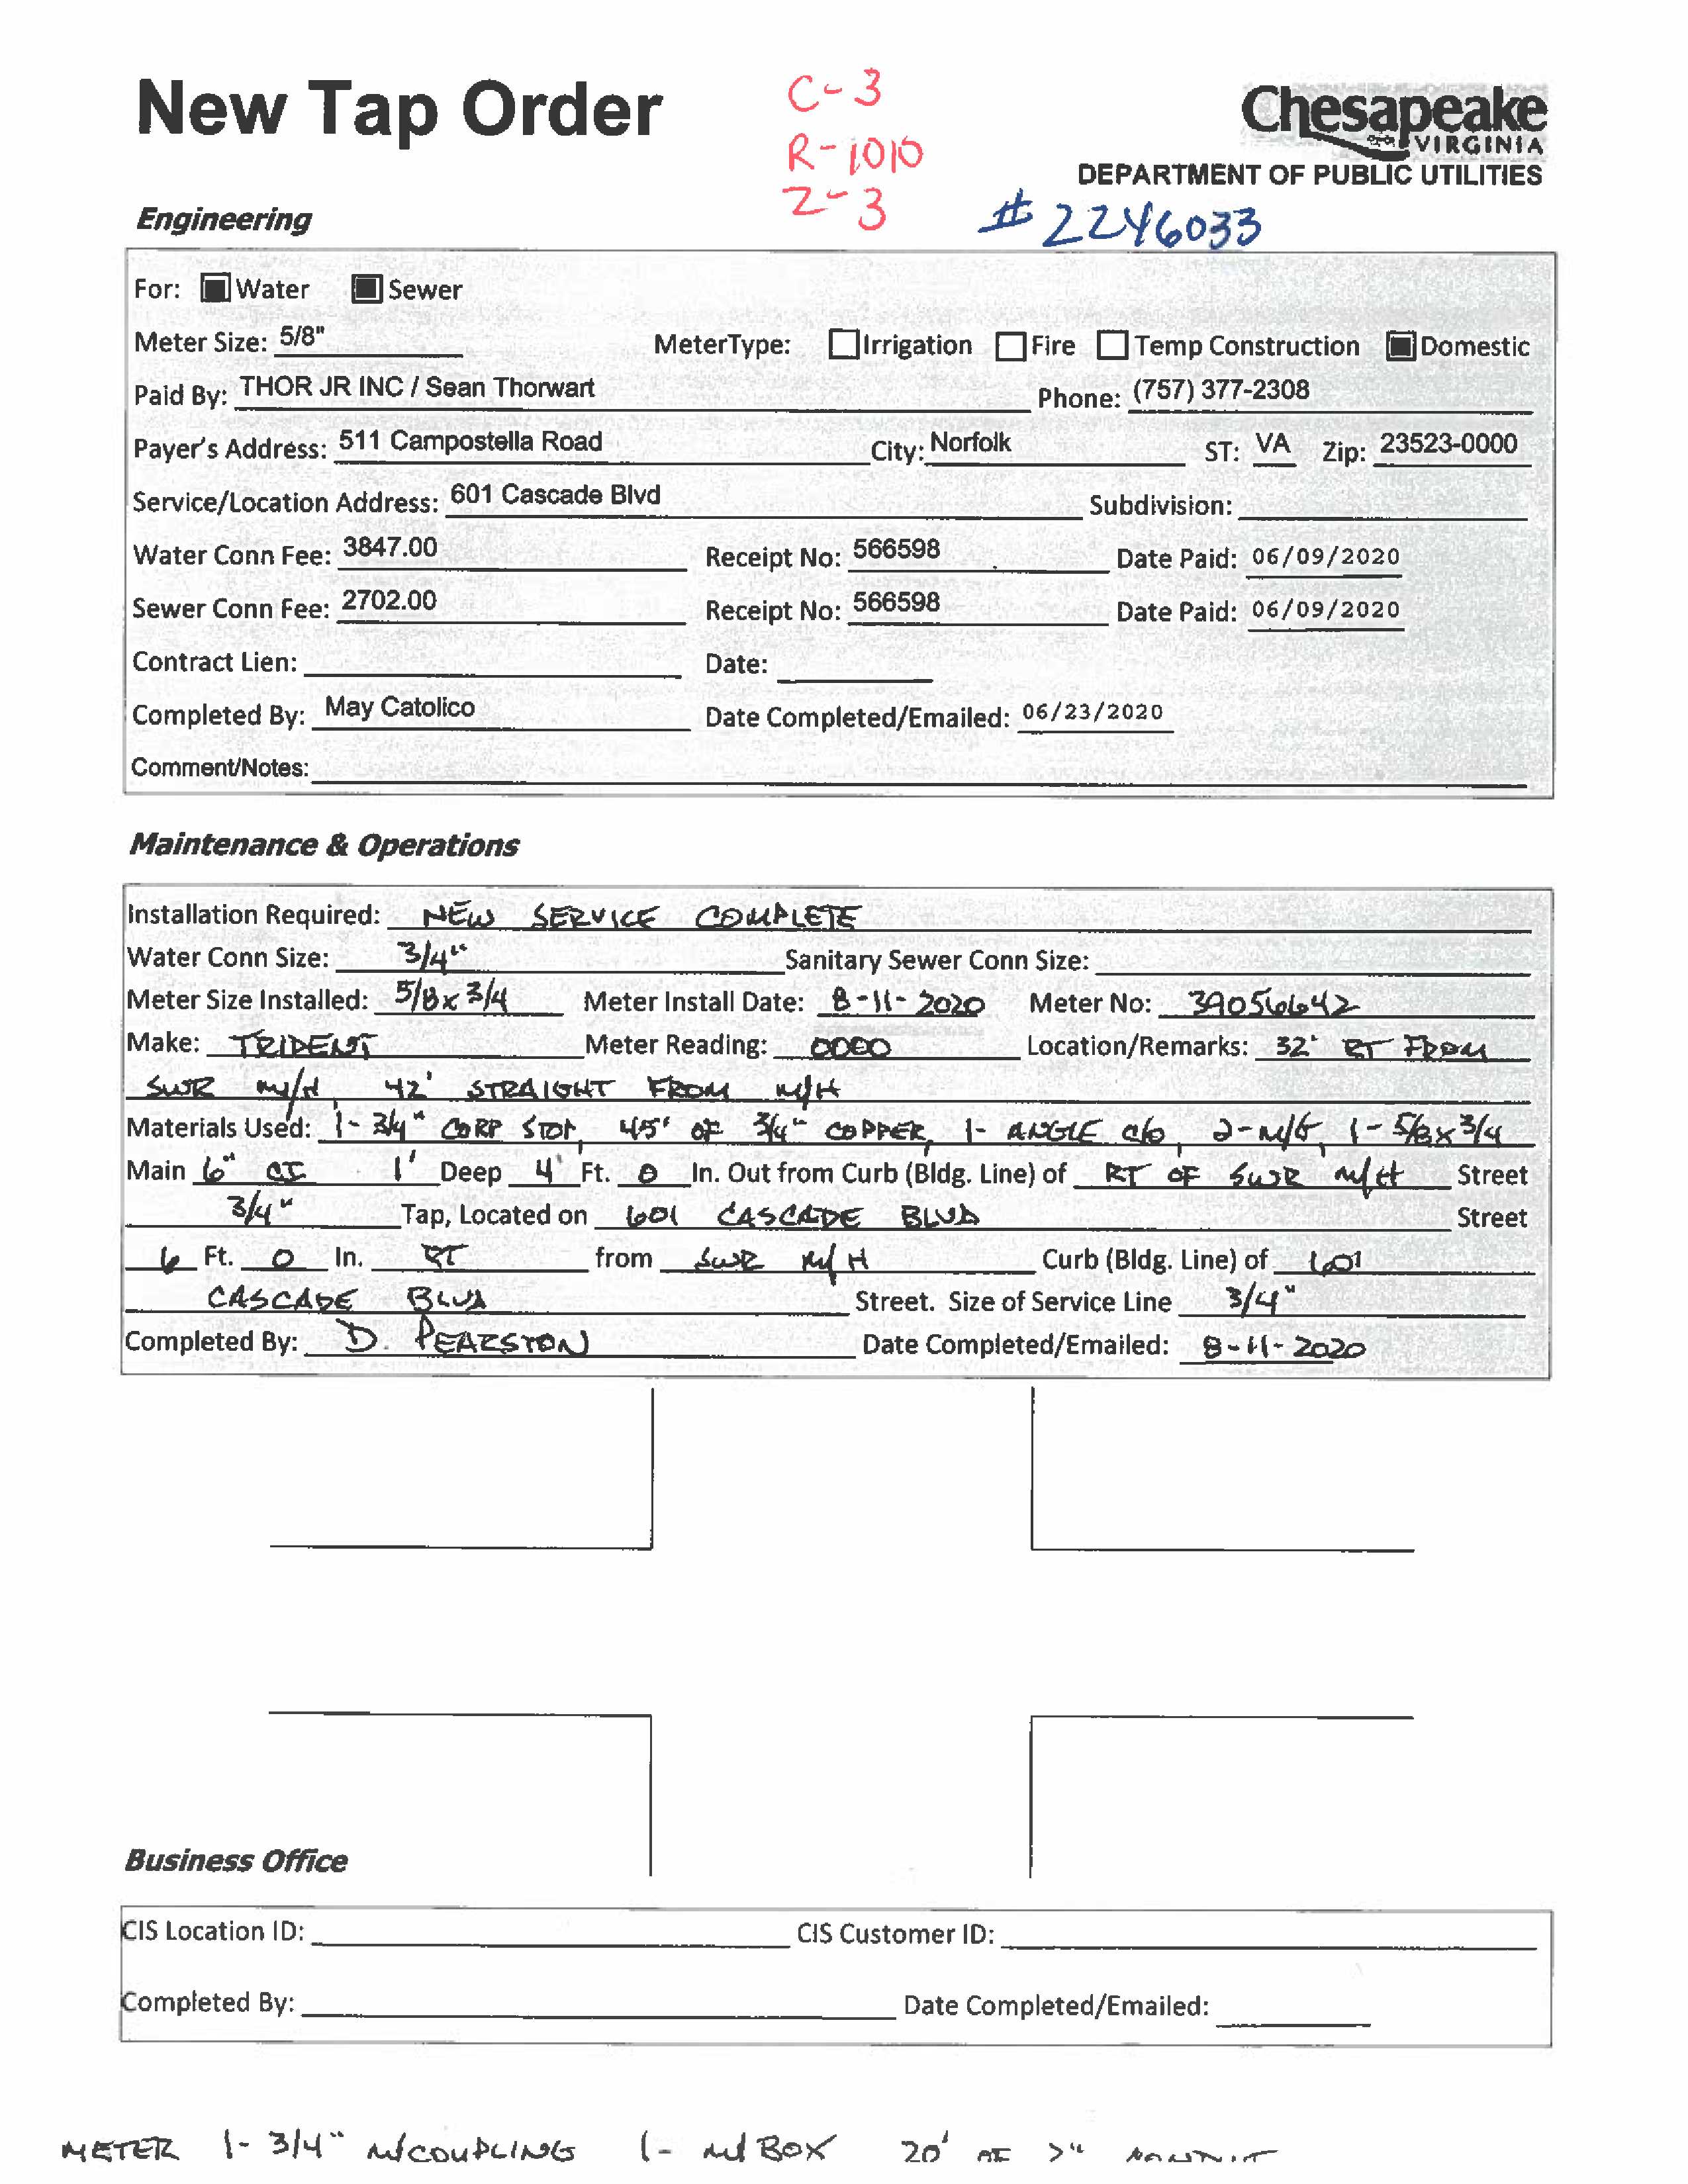 New Tap Order
C-3
R-1010
Z-3
Chesapeake
VIRGINIA
DEPARTMENT OF PUBLIC UTILITIES
# 2246033
Engineering
For: Water Sewer
Meter Size: 5/8" MeterType: Irrigation Fire Temp Construction Domestic
Paid By: THOR JR INC / Sean Thorwart Phone: (757) 377-2308
Payer's Address: 511 Campostella Road City: Norfolk ST: VA Zip: 23523-0000
Service/Location Address: 601 Cascade Blvd Subdivision:
Water Conn Fee: 3847.00 Receipt No: 566598 Date Paid: 06/09/2020
Sewer Conn Fee: 2702.00 Receipt No: 566598 Date Paid: 06/09/2020
Contract Lien: Date:
Completed By: May Catolico Date Completed/Emailed: 06/23/2020
Comment/Notes:
Maintenance & Operations
Installation Required: NEW SERVICE COMPLETE
Water Conn Size: 3/4" Sanitary Sewer Conn Size:
Meter Size Installed: 5/8 x 3/4 Meter Install Date: 8-11-2020 Meter No: 39056642
Make: TRIDENT Meter Reading: 0000 Location/Remarks: 32' RT FROM
SWR M/H, 42' STRAIGHT FROM M/H
Materials Used: 1- 3/4" CORP STOP, 45' OF 3/4" COPPER, 1- ANGLE c/o, 2-M/G, 1- 5/8 x 3/4
Main 6" CI 1' Deep 4' Ft. 0 In. Out from Curb (Bldg. Line) of RT OF SWR M/H Street
3/4" Tap, Located on 601 CASCADE BLVD Street
6 Ft. 0 In. RT from SWR M/H Curb (Bldg. Line) of 601
CASCADE BLVD Street. Size of Service Line 3/4"
Completed By: D. PEARSTON Date Completed/Emailed: 8-11-2020
Business Office
CIS Location ID: CIS Customer ID:
Completed By: Date Completed/Emailed:
METER 1- 3/4" M/COUPLING 1- M/BOX 20' OF